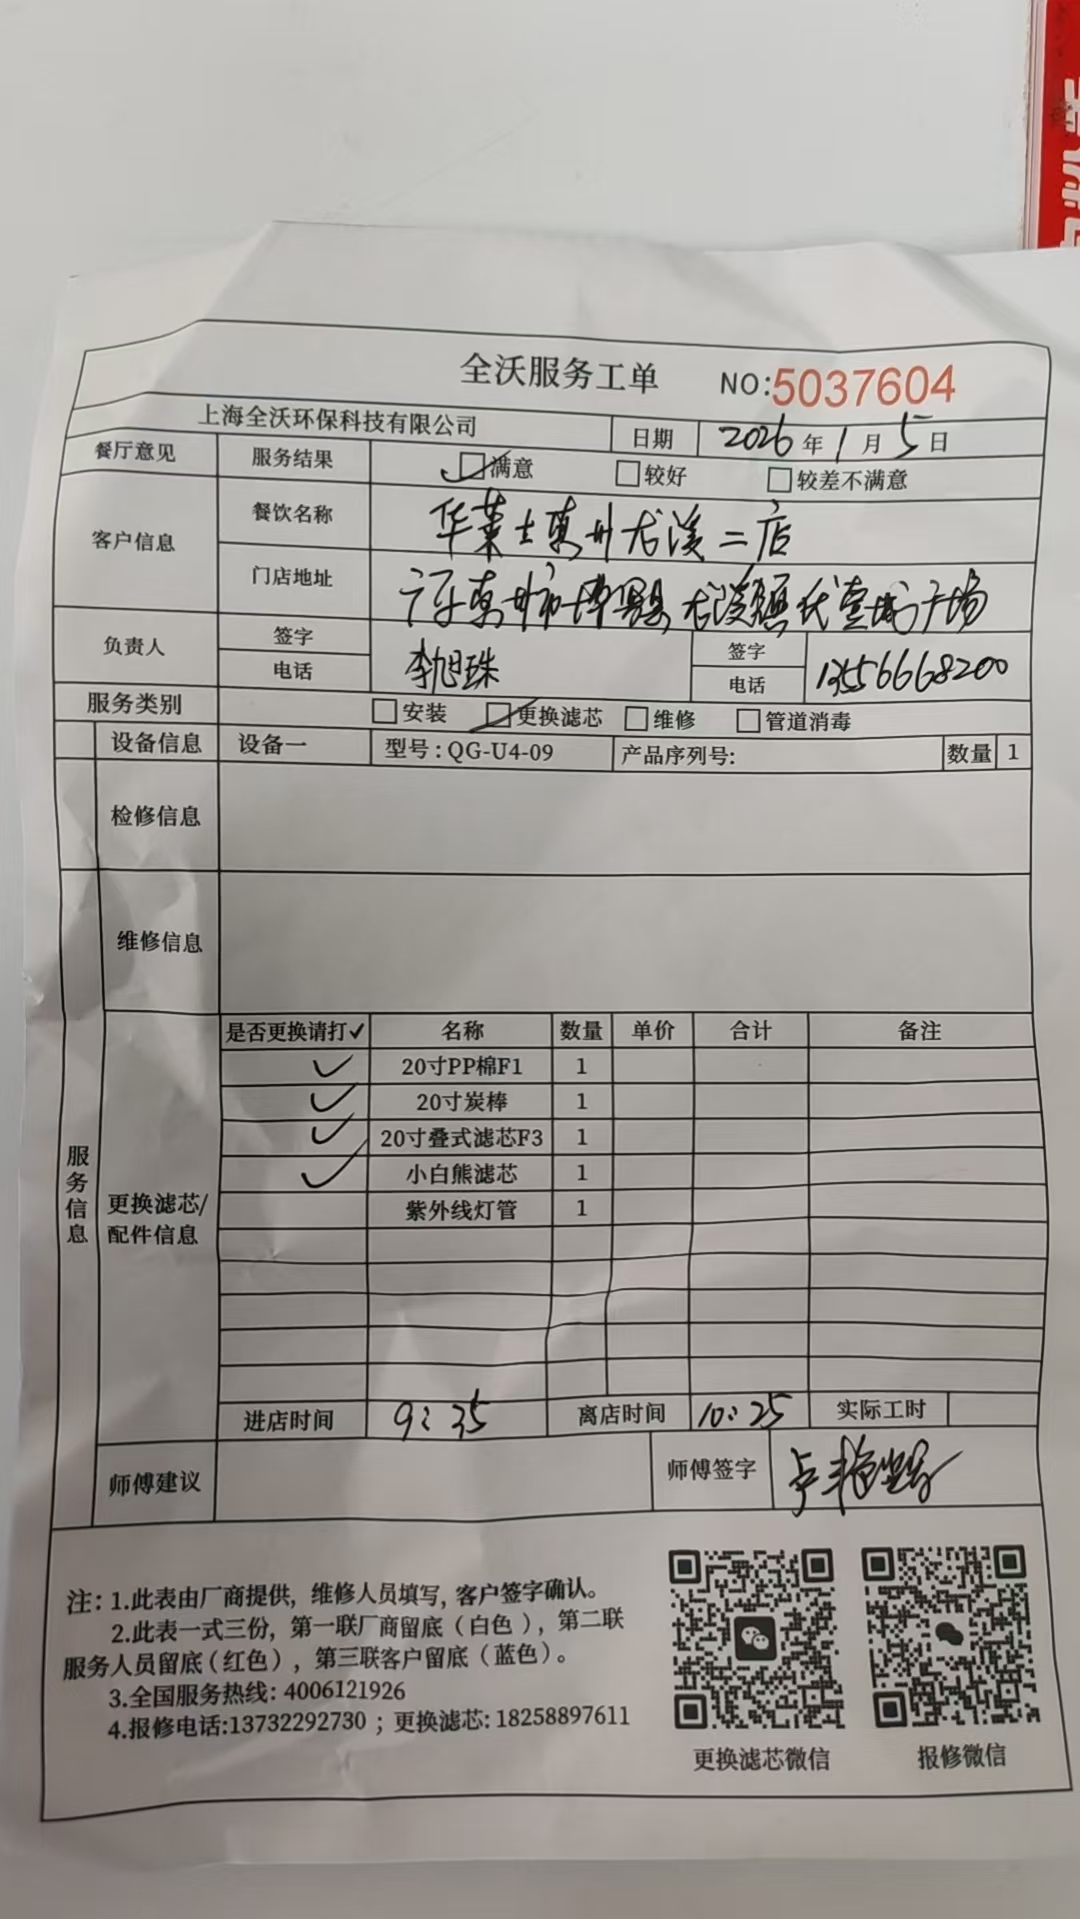 全沃服务工单 NO:5037604
上海全沃环保科技有限公司 日期 2026年1月5日
餐厅意见 服务结果 满意 较好 较差不满意
客户信息 餐饮名称 华莱士惠州龙溪二店
门店地址 广东惠州市博罗县龙溪镇 城广场
负责人 签字 李旭珠 签字
电话 电话 13556668200
服务类别 安装 更换滤芯 维修 管道消毒
设备信息 设备一 型号:QG-U4-09 产品序列号: 数量 1
检修信息
维修信息
服务信息
更换滤芯/
配件信息
是否更换请打✓ 名称 数量 单价 合计 备注
✓ 20寸PP棉F1 1
✓ 20寸炭棒 1
✓ 20寸叠式滤芯F3 1
✓ 小白熊滤芯 1
紫外线灯管 1
进店时间 9:35 离店时间 10:25 实际工时
师傅建议 师傅签字
注:1.此表由厂商提供,维修人员填写,客户签字确认。
2.此表一式三份,第一联厂商留底(白色),第二联
服务人员留底(红色),第三联客户留底(蓝色)。
3.全国服务热线:4006121926
4.报修电话:13732292730;更换滤芯:18258897611
更换滤芯微信 报修微信